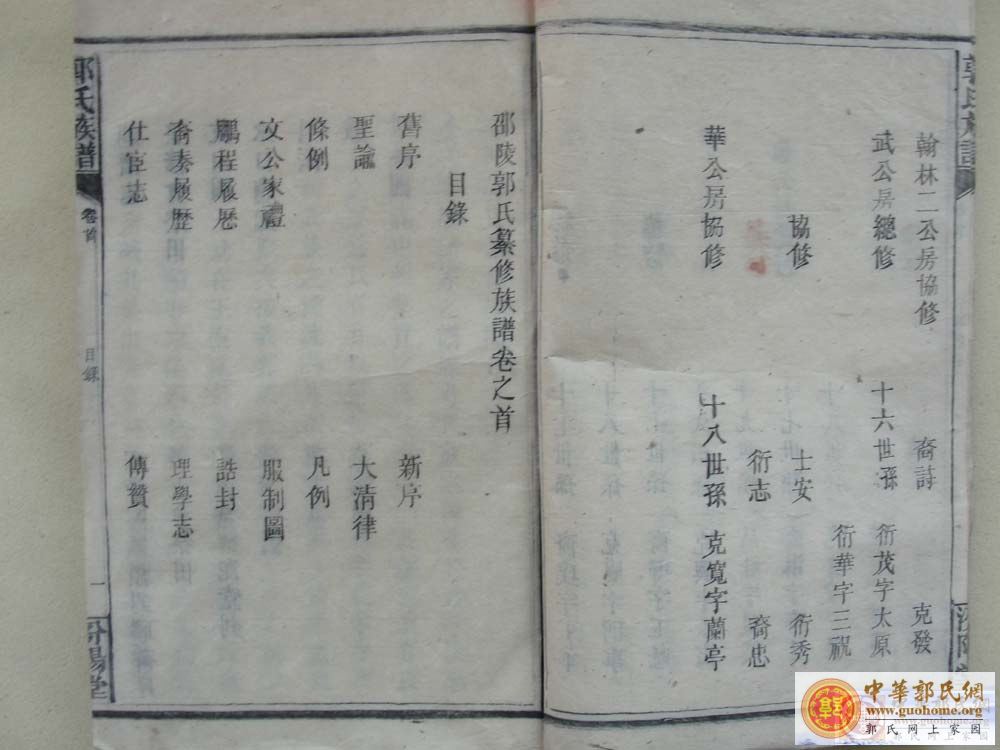 翰林二公房協修 裔詩 克發
武公房總修 十六世孫 衍茂字太原
衍華字三祝
協修 士安 衍秀
衍志 裔忠
華公房協修 十八世孫 克寬字蘭亭
邵陵郭氏纂修族譜卷之首
目錄
舊序 新序
聖諭 大清律
條例 凡例
文公家禮 服制圖
鵬程履歷 誥封
裔奏履歷 理學志
仕宦志 傳贊
郭氏族譜 卷首 目錄 一 汾陽堂
中華郭氏網
www.guohome.org
郭氏网上家园